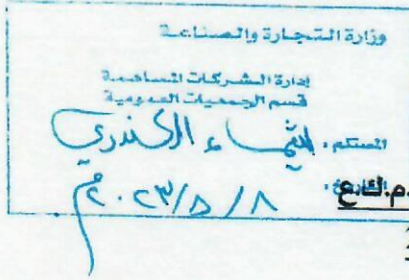 وزارة التجارة والصناعة
إدارة الشركات المساهمة
قسم الجمعيات العمومية
المستلم: شيماء الكندري
التاريخ: ٢٠٢٣/٥/٨ م
ش.م.ك.ع